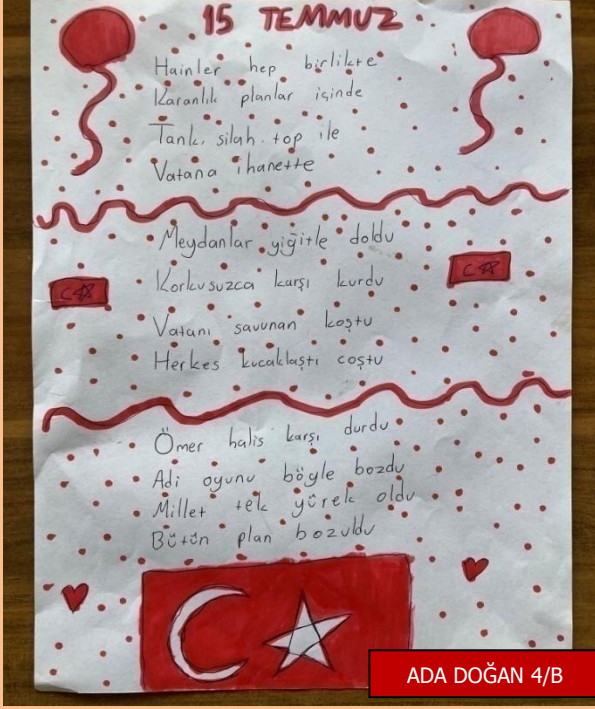 15 TEMMUZ
Hainler hep birlikte
Karanlık planlar içinde
Tank, silah top ile
Vatana ihanette
Meydanlar yiğitle doldu
Korkusuzca karşı kurdu
Vatanı savunan koştu
Herkes kucaklaştı coştu
Ömer halis karşı durdu
Adi oyunu böyle bozdu
Millet tek yürek oldu
Bütün plan bozuldu
ADA DOĞAN 4/B